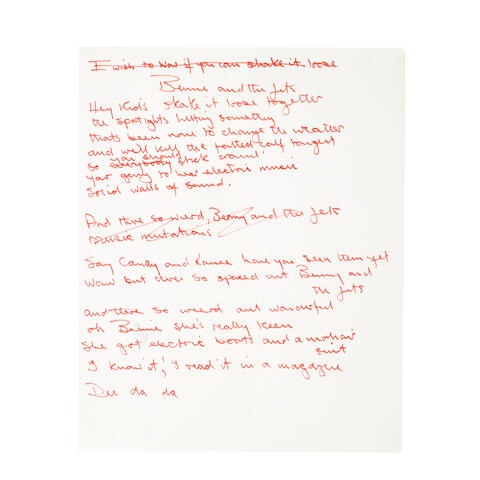 I wish to now if you can shake it loose
Bennie and the Jets
Hey Kids shake it loose together
the spotlights hitting something
thats been none to change the weather
and we'll kill the fatted calf tonight
so you should
everybody stick around
your going to hear electric music
Solid walls of sound.
And there so wierd, Benny and the Jets
music mutations
Say Candy and Ronnie have you seen them yet
Wow but there so spaced out Benny and
the Jets
and there so weird and wonderful
oh Bennie she's really keen
She got electric boots and a mohair
suit
I know it, I read it in a magazine
Da da